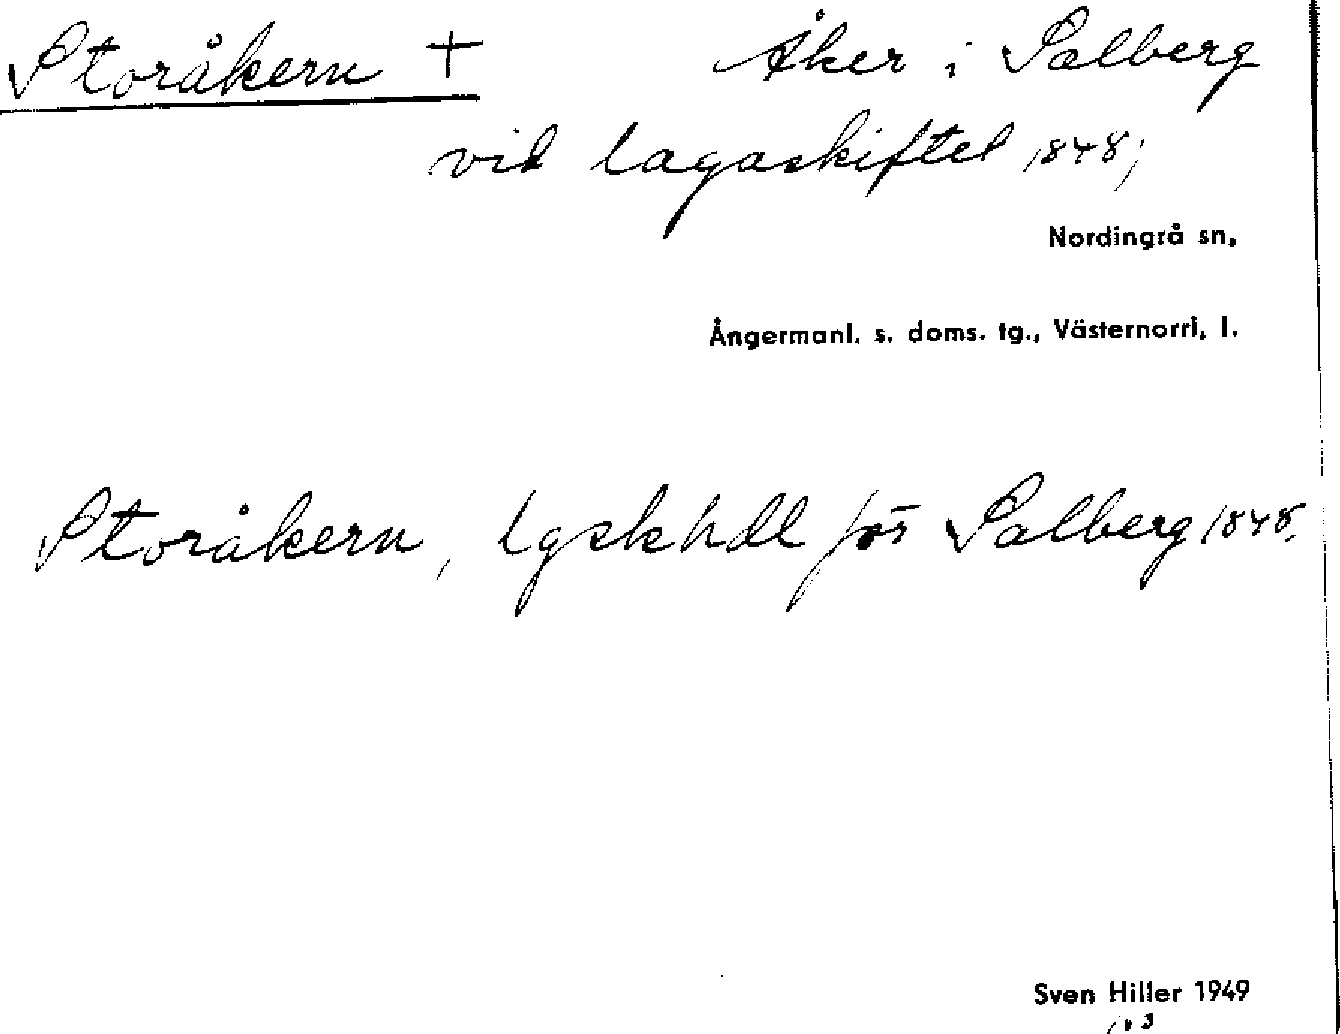 Storåkern +
Åker i Salberg
vid lagaskiftet 1848;
Nordingrå sn,
Ångermanl. s. doms. tg., Västernorrl, l.
Storåkern, lgskhdl för Salberg 1848.
Sven Hiller 1949